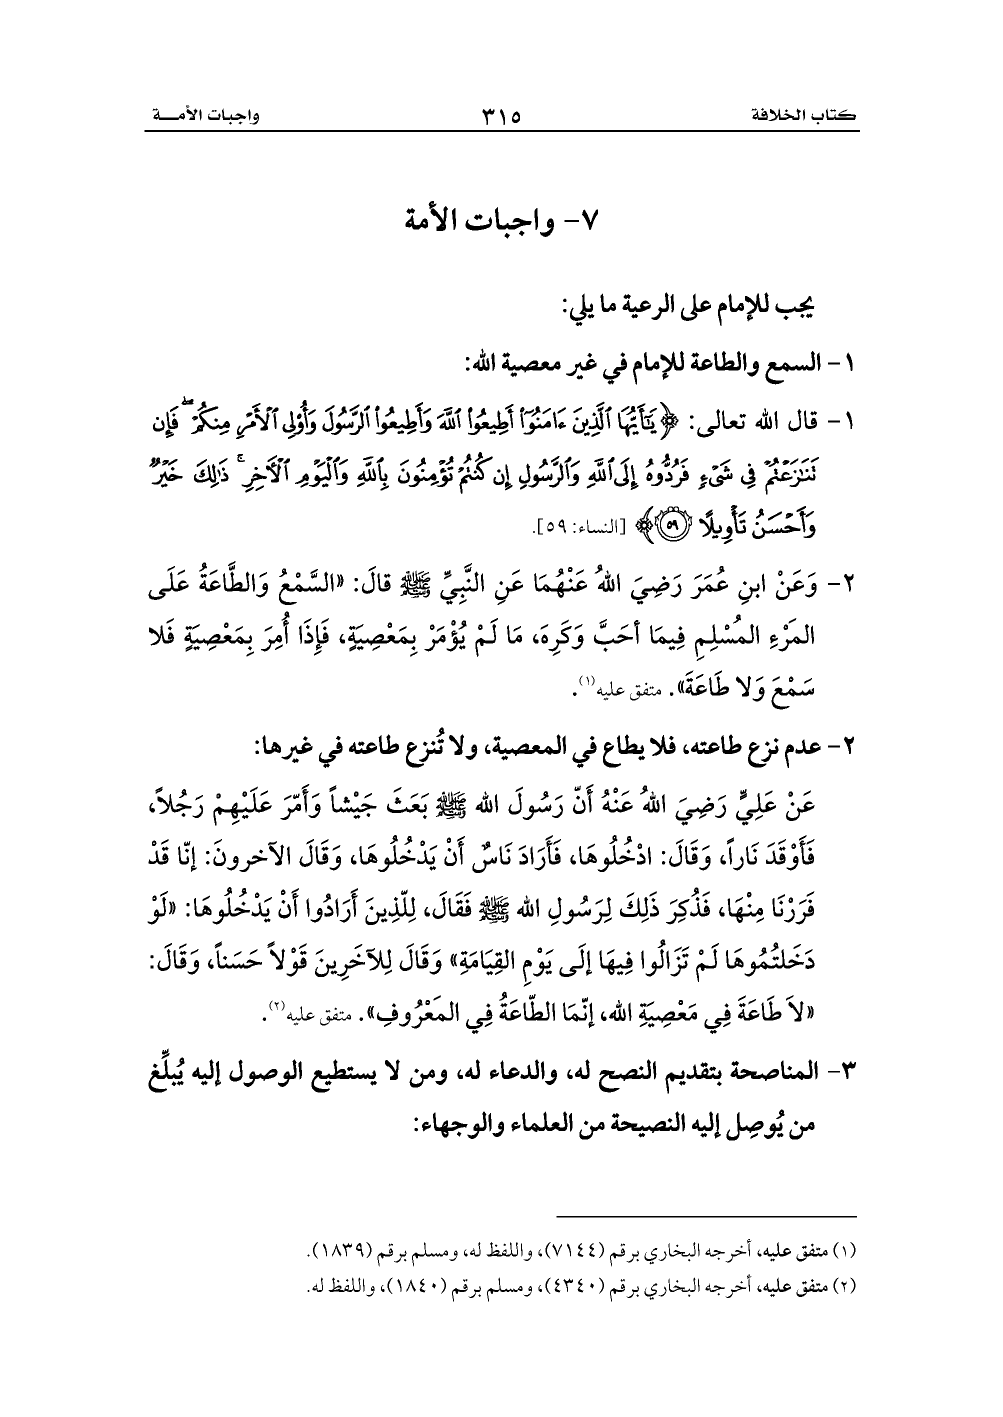 كتاب الخلافة ٣١٥ واجبات الأمــة
٧- واجبات الأمة
يجب للإمام على الرعية ما يلي:
١- السمع والطاعة للإمام في غير معصية الله:
١- قال الله تعالى: ﴿يَٰٓأَيُّهَا ٱلَّذِينَ ءَامَنُوٓا۟ أَطِيعُوا۟ ٱللَّهَ وَأَطِيعُوا۟ ٱلرَّسُولَ وَأُو۟لِى ٱلْأَمْرِ مِنكُمْ ۖ فَإِن
تَنَٰزَعْتُمْ فِى شَىْءٍ فَرُدُّوهُ إِلَى ٱللَّهِ وَٱلرَّسُولِ إِن كُنتُمْ تُؤْمِنُونَ بِٱللَّهِ وَٱلْيَوْمِ ٱلْءَاخِرِ ۚ ذَٰلِكَ خَيْرٌ
وَأَحْسَنُ تَأْوِيلًا ٥٩﴾ [النساء: ٥٩].
٢- وَعَنْ ابنِ عُمَرَ رَضِيَ اللهُ عَنْهُمَا عَنِ النَّبِيِّ ﷺ قالَ: «السَّمْعُ وَالطَّاعَةُ عَلَى
المَرْءِ المُسْلِمِ فِيمَا أحَبَّ وَكَرِهَ، مَا لَمْ يُؤْمَرْ بِمَعْصِيَةٍ، فَإِذَا أُمِرَ بِمَعْصِيَةٍ فَلا
سَمْعَ وَلا طَاعَةَ». متفق عليه(١).
٢- عدم نزع طاعته، فلا يطاع في المعصية، ولا تُنزع طاعته في غيرها:
عَنْ عَلِيٍّ رَضِيَ اللهُ عَنْهُ أَنّ رَسُولَ الله ﷺ بَعَثَ جَيْشاً وَأَمّرَ عَلَيْهِمْ رَجُلاً،
فَأَوْقَدَ نَاراً، وَقَالَ: ادْخُلُوهَا، فَأَرَادَ نَاسٌ أَنْ يَدْخُلُوهَا، وَقَالَ الآخرونَ: إنّا قَدْ
فَرَرْنَا مِنْهَا، فَذُكِرَ ذَلِكَ لِرَسُولِ الله ﷺ فَقَالَ، لِلّذِينَ أَرَادُوا أَنْ يَدْخُلُوهَا: «لَوْ
دَخَلتُمُوهَا لَمْ تَزَالُوا فِيهَا إلَى يَوْمِ القِيَامَةِ» وَقَالَ لِلآخَرِينَ قَوْلاً حَسَناً، وَقَالَ:
«لاَ طَاعَةَ فِي مَعْصِيَةِ الله، إنّمَا الطّاعَةُ فِي المَعْرُوفِ». متفق عليه(٢).
٣- المناصحة بتقديم النصح له، والدعاء له، ومن لا يستطيع الوصول إليه يُبلِّغ
من يُوصِل إليه النصيحة من العلماء والوجهاء:
(١) متفق عليه، أخرجه البخاري برقم (٧١٤٤)، واللفظ له، ومسلم برقم (١٨٣٩).
(٢) متفق عليه، أخرجه البخاري برقم (٤٣٤٠)، ومسلم برقم (١٨٤٠)، واللفظ له.